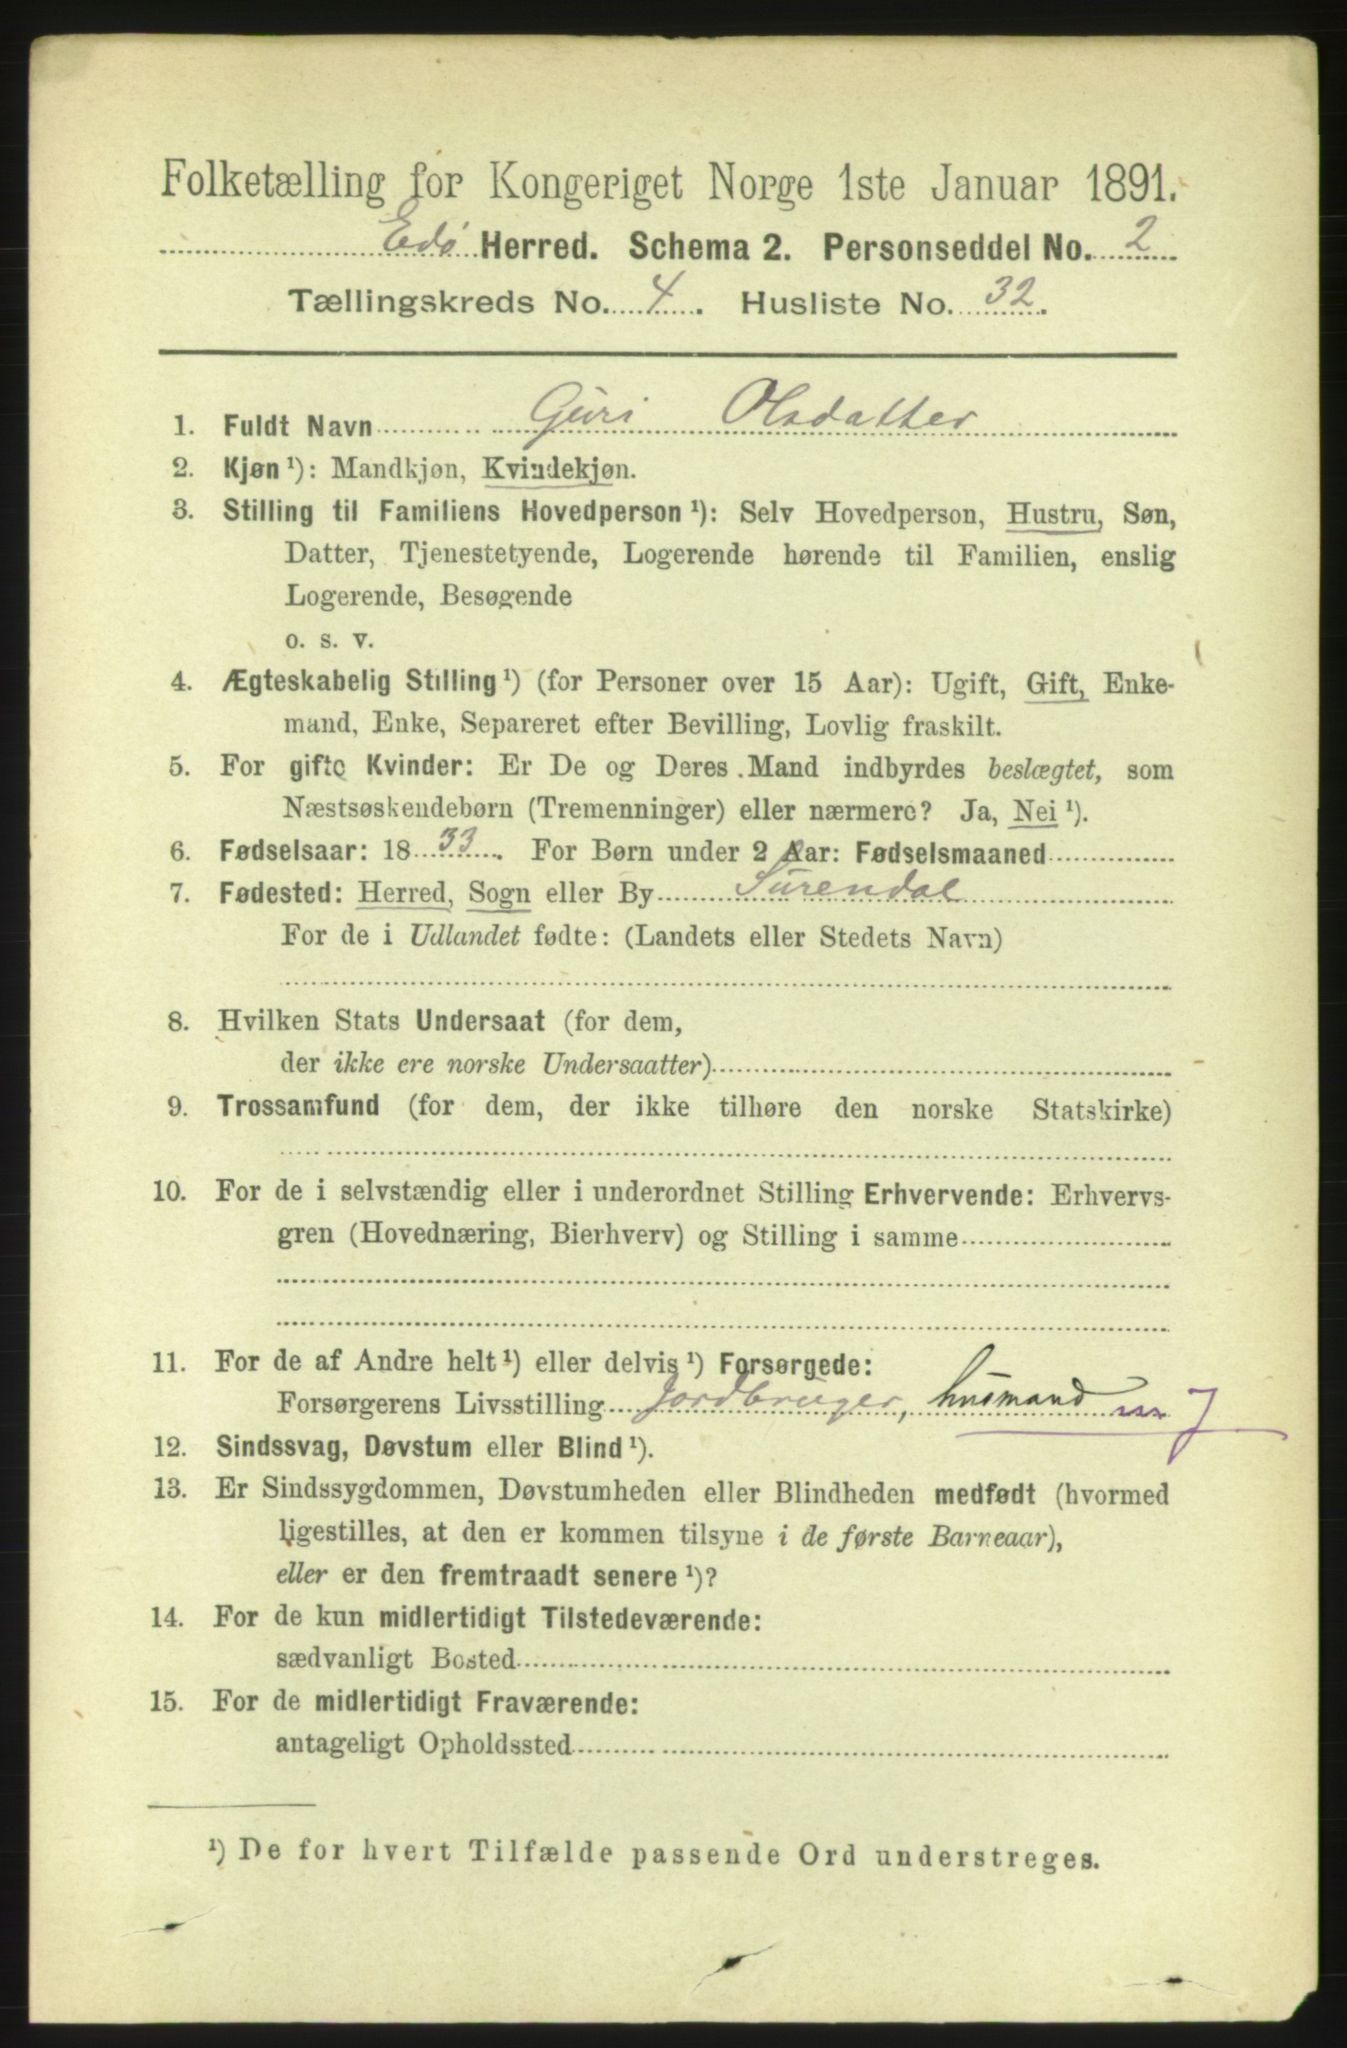 Folketælling for Kongeriget Norge 1ste Januar 1891.
Edø Herred. Schema 2. Personseddel No. 2
Tællingskreds No. 4. Husliste No. 32.
1. Fuldt Navn Guri Olsdatter
2. Kjøn ¹): Mandkjøn, Kvindekjøn.
3. Stilling til Familiens Hovedperson ¹): Selv Hovedperson, Hustru, Søn,
Datter, Tjenestetyende, Logerende hørende til Familien, enslig
Logerende, Besøgende
o. s. v.
4. Ægteskabelig Stilling ¹) (for Personer over 15 Aar): Ugift, Gift, Enke-
mand, Enke, Separeret efter Bevilling, Lovlig fraskilt.
5. For gifte Kvinder: Er De og Deres Mand indbyrdes beslægtet, som
Næstsøskendebørn (Tremenninger) eller nærmere? Ja, Nei ¹).
6. Fødselsaar: 1833. For Børn under 2 Aar: Fødselsmaaned
7. Fødested: Herred, Sogn eller By Surendal
For de i Udlandet fødte: (Landets eller Stedets Navn)
8. Hvilken Stats Undersaat (for dem,
der ikke ere norske Undersaatter)
9. Trossamfund (for dem, der ikke tilhøre den norske Statskirke)
10. For de i selvstændig eller i underordnet Stilling Erhvervende: Erhvervs-
gren (Hovednæring, Bierhverv) og Stilling i samme
11. For de af Andre helt ¹) eller delvis ¹) Forsørgede:
Forsørgerens Livsstilling Jordbruger, husmand J
12. Sindssvag, Døvstum eller Blind ¹).
13. Er Sindssygdommen, Døvstumheden eller Blindheden medfødt (hvormed
ligestilles, at den er kommen tilsyne i de første Barneaar),
eller er den fremtraadt senere ¹)?
14. For de kun midlertidigt Tilstedeværende:
sædvanligt Bosted
15. For de midlertidigt Fraværende:
antageligt Opholdssted
¹) De for hvert Tilfælde passende Ord understreges.